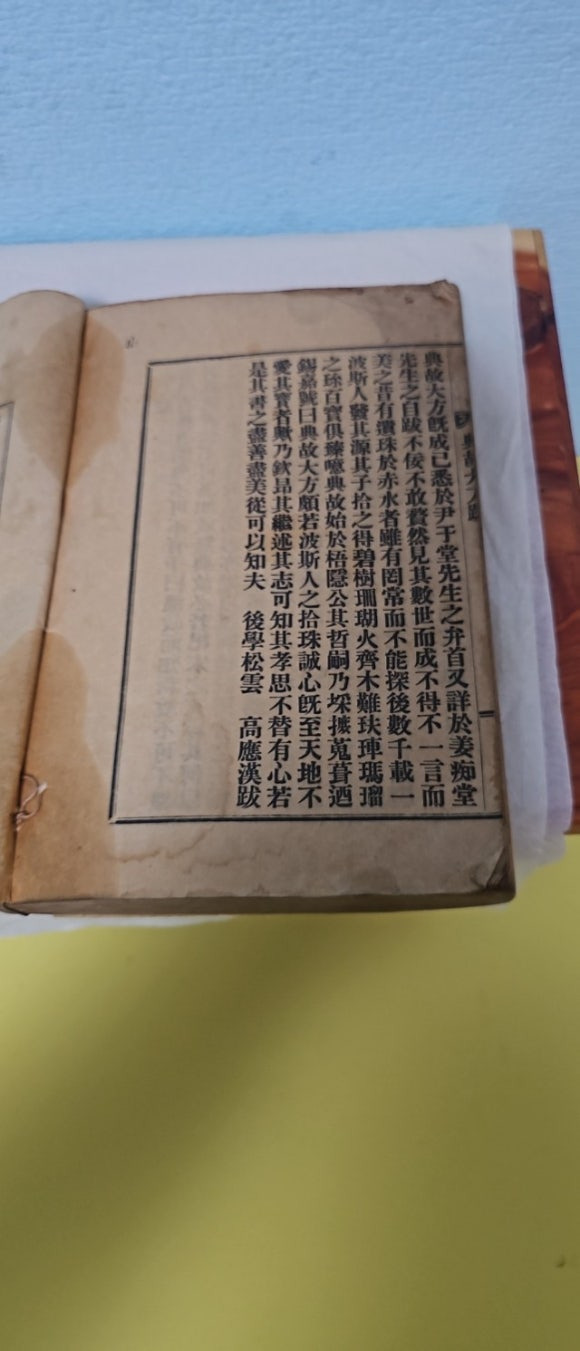 典故大方跋
典故大方旣成已悉於尹于堂先生之弁首又詳於姜痴堂
先生之自跋不佞不敢贅然見其數世而成不得不一言而
美之昔有遺珠於赤水者雖有罔常而不能探後數千載一
波斯人醫其源其子拾之得碧樹珊瑚火齊木難玞瑼瑪瑠
之珎百寶俱臻噫典故始於梧隱公其哲嗣乃埰摭蒐葺迺
錫嘉號曰典故大方頗若波斯人之拾珠誠心旣至天地不
愛其寶者歟乃欽昻其繼述其志可知其孝思不替有心若
是其書之盡善盡美從可以知夫 後學松雲 高應漢跋